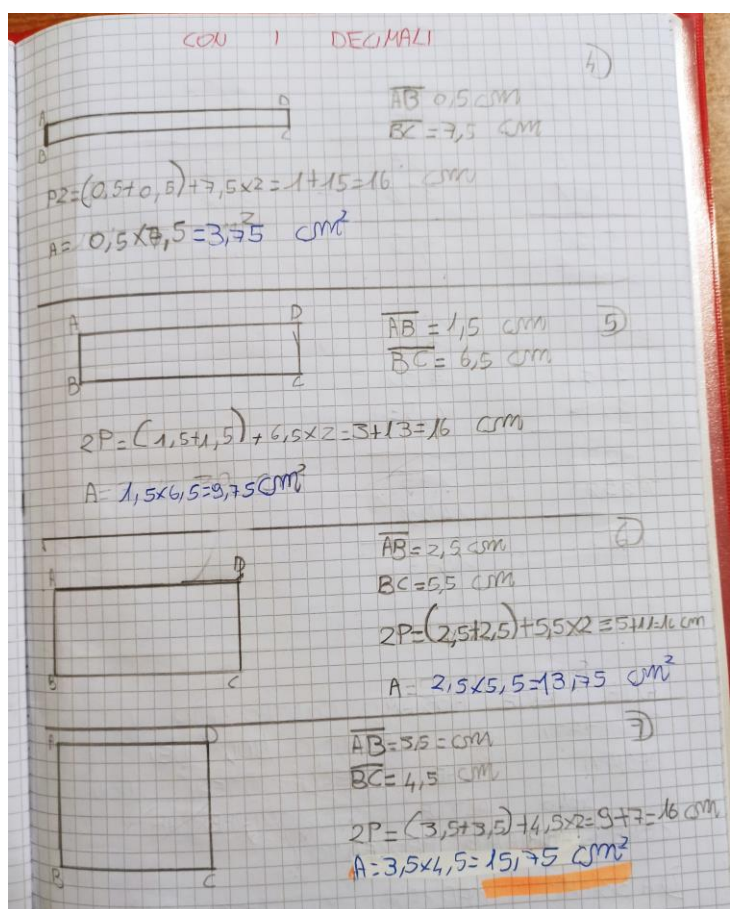 CON I DECIMALI
4)
A D
B C
AB 0,5 cm
BC = 7,5 cm
P2=(0,5+0,5)+7,5x2=1+15=16 cm
A= 0,5x7,5=3,75 cm²
5)
A D
B C
AB = 1,5 cm
BC = 6,5 cm
2P=(1,5+1,5)+6,5x2=3+13=16 cm
A= 1,5x6,5=9,75 cm²
6)
A D
B C
AB = 2,5 cm
BC=5,5 cm
2P=(2,5+2,5)+5,5x2=5+11=16 cm
A= 2,5x5,5=13,75 cm²
7)
A D
B C
AB=3,5=cm
BC= 4,5 cm
2P=(3,5+3,5)+4,5x2=9+7=16 cm
A=3,5x4,5=15,75 cm²